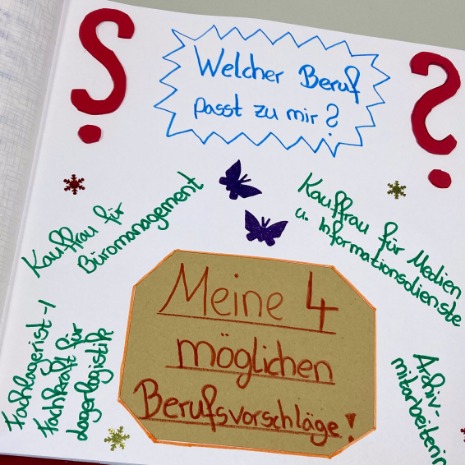 ?
Welcher Beruf
passt zu mir?
?
Kauffrau für
Büromanagement
Kauffrau für Medien
u. Informationsdienste
Meine 4
möglichen
Berufsvorschläge!
Fachlagerist-/
Fachkraft für
Lagerlogistik
Archiv-
mitarbeiterin